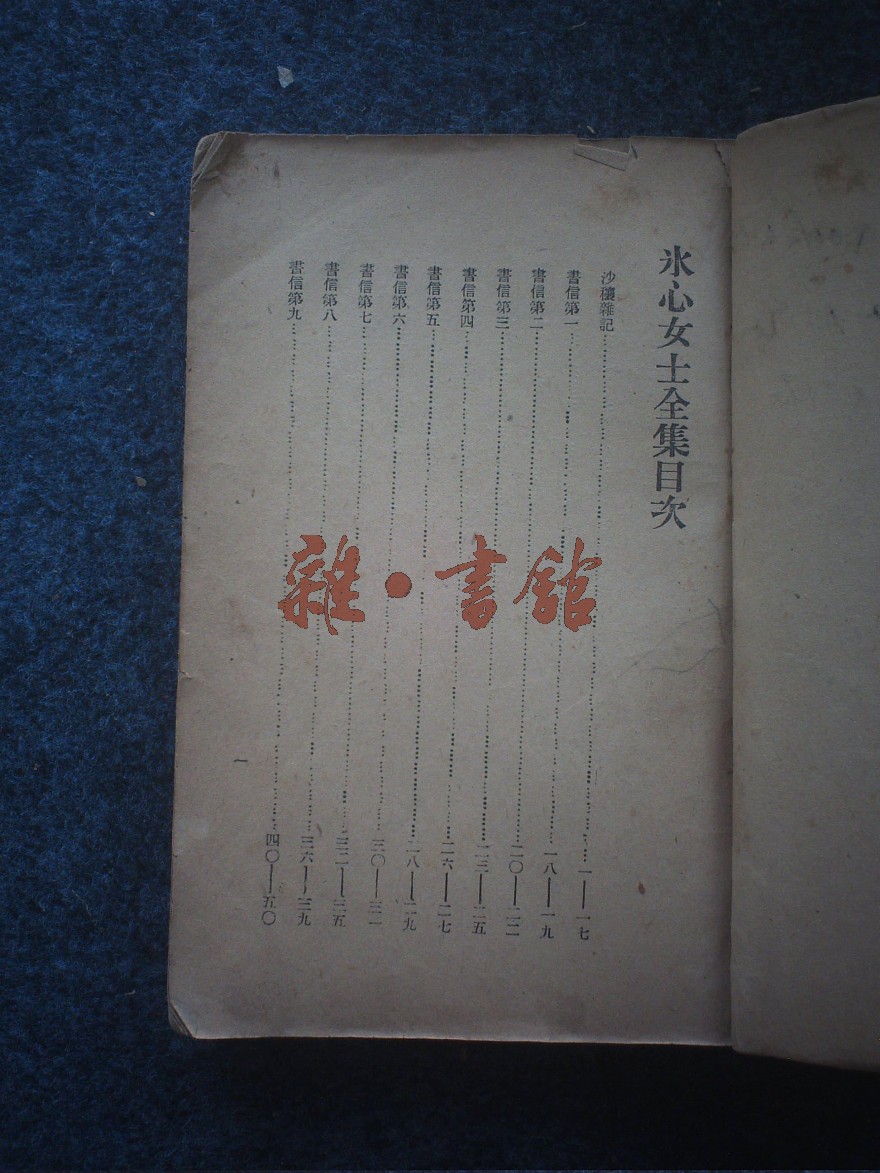 氷心女士全集目次
沙穰雜記……一——一七
書信第一……一八——一九
書信第二……二〇——二二
書信第三……二三——二五
書信第四……二六——二七
書信第五……二八——二九
書信第六……三〇——三一
書信第七……三二——三五
書信第八……三六——三九
書信第九……四〇——五〇
一
雜·書館